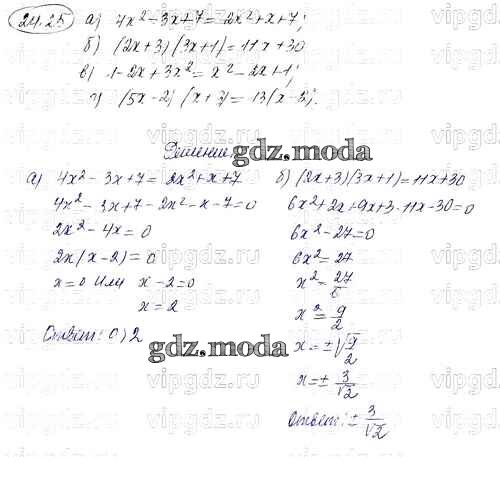 24.25 а) 4x² - 3x + 7 = 2x² + x + 7;
б) (2x+3)(3x+1) = 11x + 30
в) 1 - 2x + 3x² = x² - 2x + 1;
г) (5x-2)(x+3) = 13(x-2).
Решение
gdz.moda
а) 4x² - 3x + 7 = 2x² + x + 7
4x² - 3x + 7 - 2x² - x - 7 = 0
2x² - 4x = 0
2x(x-2) = 0
x = 0 или x - 2 = 0
x = 2
Ответ: 0; 2
б) (2x+3)(3x+1) = 11x + 30
6x² + 2x + 9x + 3 - 11x - 30 = 0
6x² - 27 = 0
6x² = 27
x² = 27/6
x² = 9/2
x = ±√9/2
x = ± 3/√2
Ответ: ± 3/√2
gdz.moda
vipgdz.ru